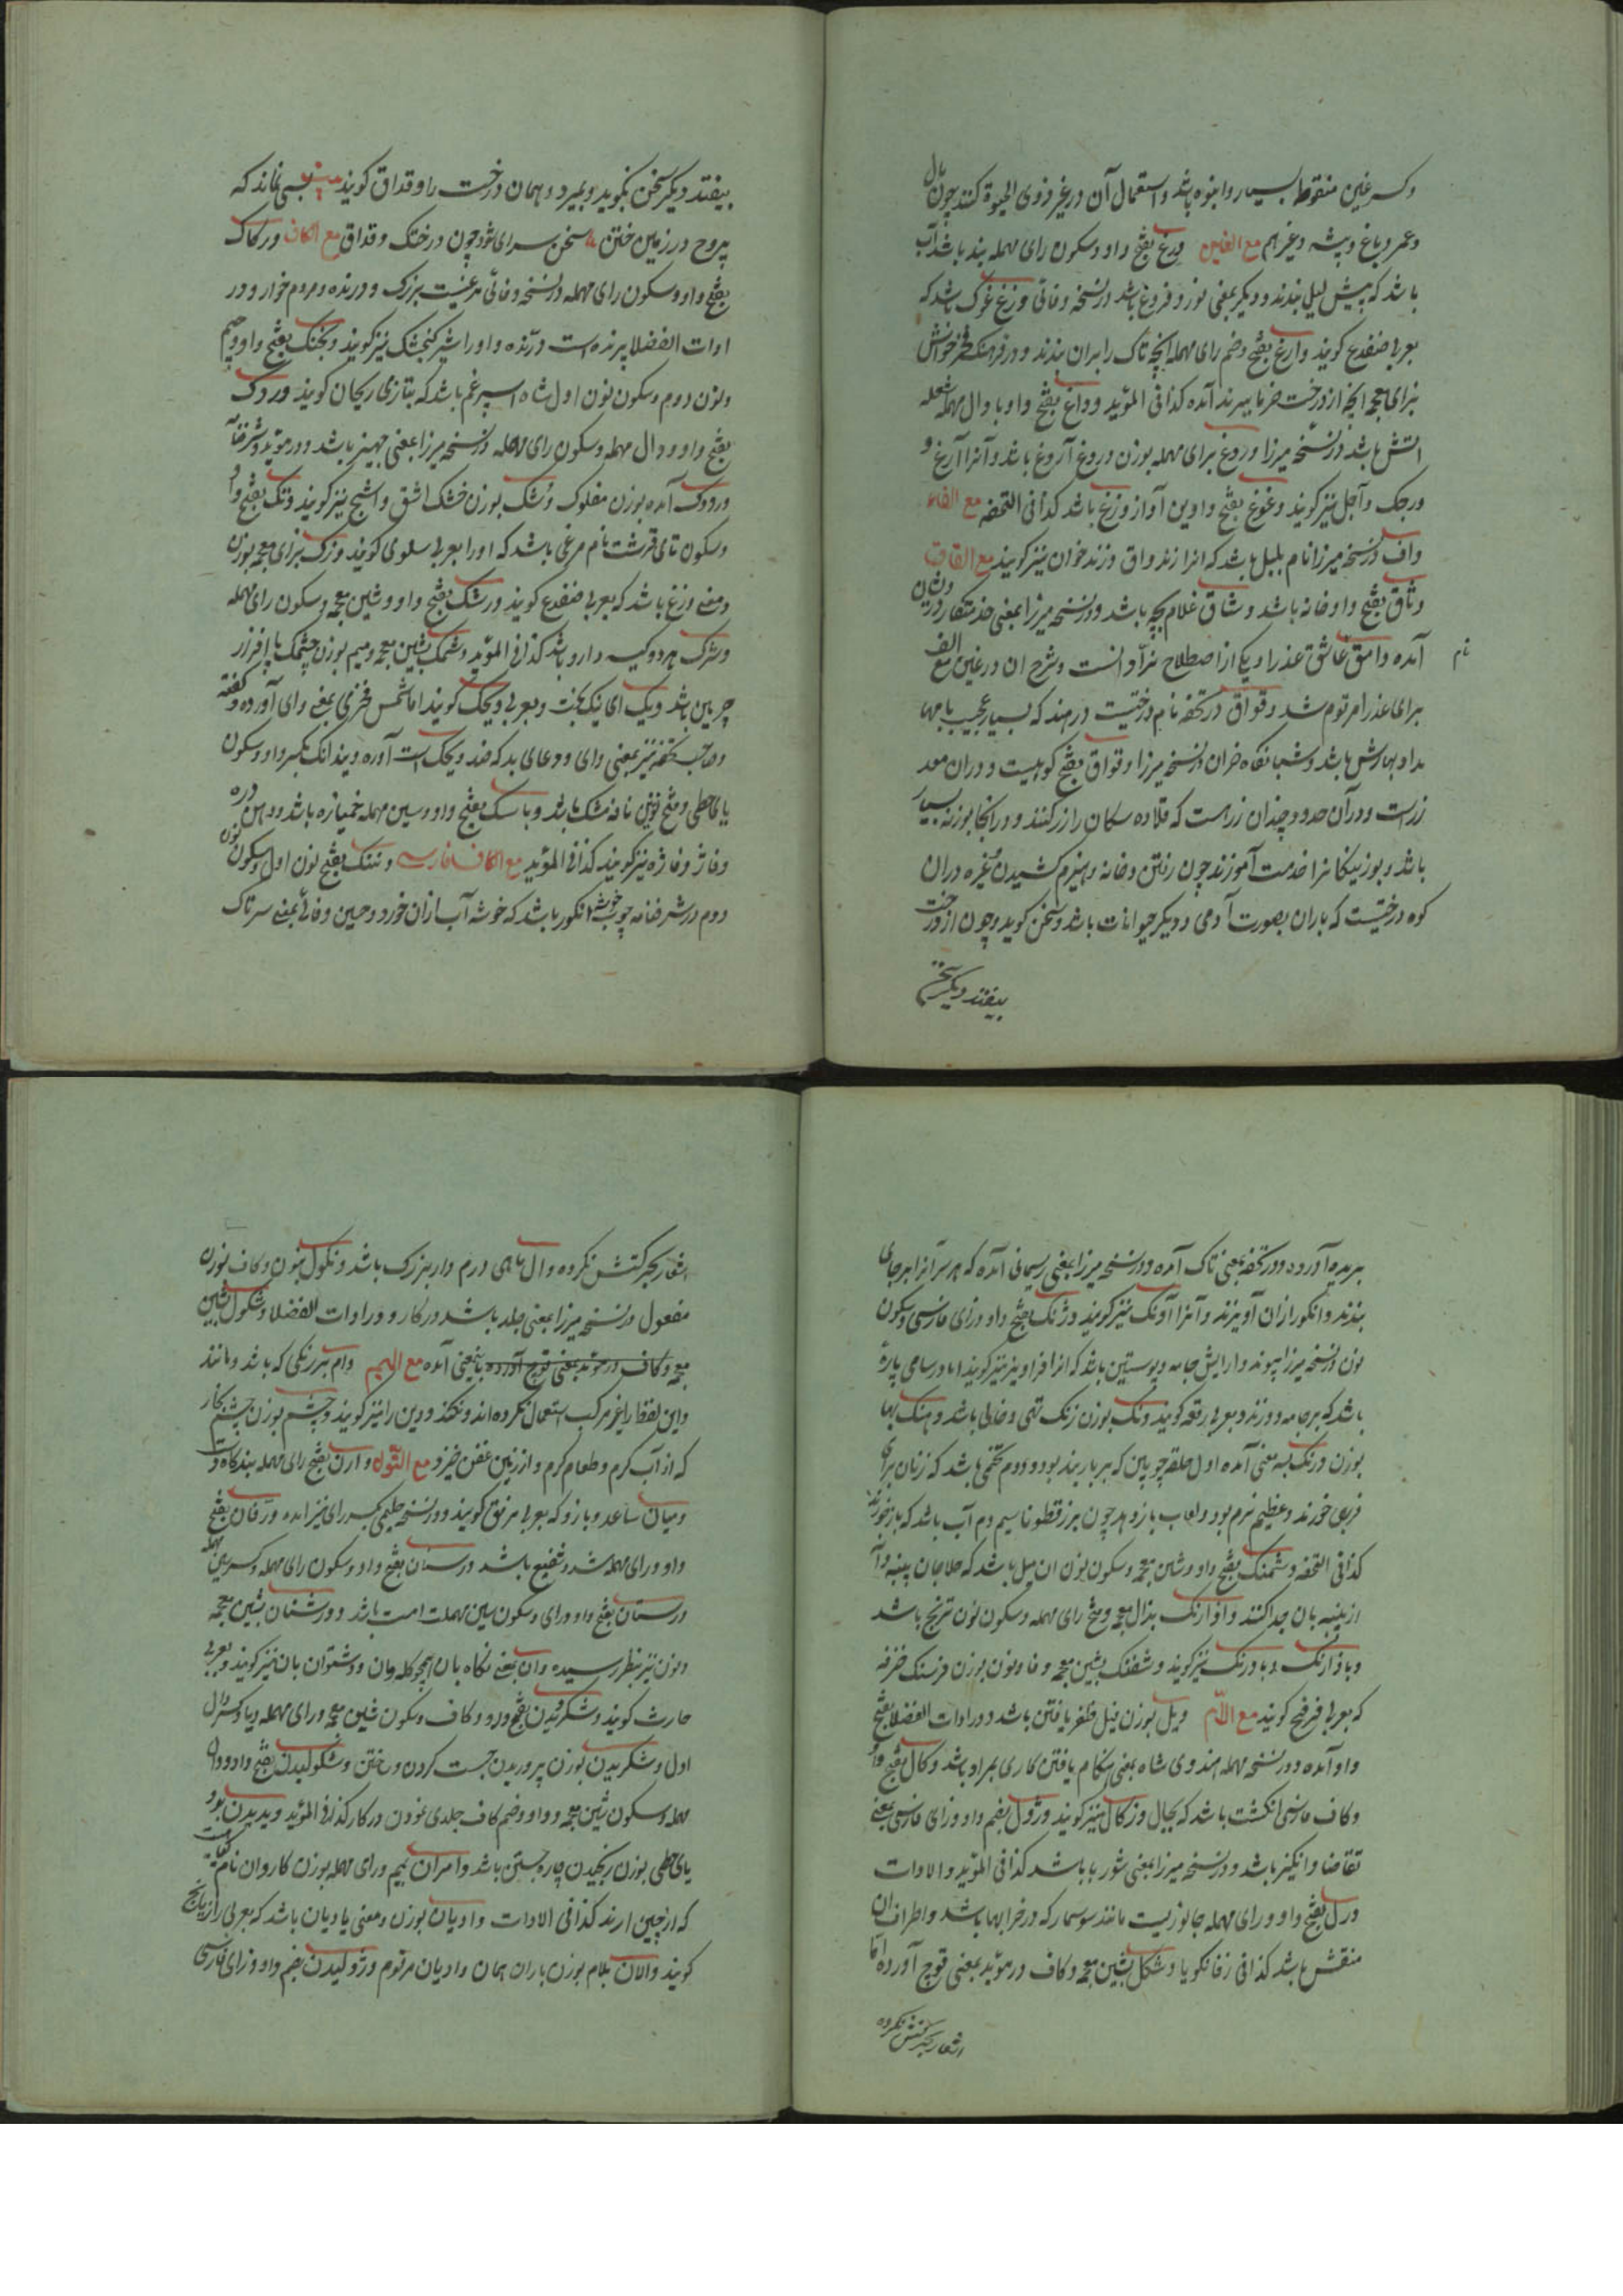 وکسر غین منقوط بسیار وانبوه باشد واستعمال آن در غیر ذوی الحیوة کنند چون مال
وعمر وباغ وبیشه وغیر هم مع الغین ورغ بفتح واو وسکون رای مهمله بند باشد آب
باشد که پیش لیل بندند ودیگر بمعنی نور وفروغ باشد در نسخه وفائی وزغ غوک باشد که
بعربی ضفدع گویند وارغ بفتح وضم رای مهمله آنچه تاک را بران بندند ودر فرهنگ
بزای معجمه آنچه از درخت خرما ببرند آمده کذا فی المؤید وداغ بفتح واو با دال مهمله شعله
اتش باشد در نسخه میرزا وروغ برای مهمله بوزن دروغ آروغ باشد وآنرا آرغ و
ورجک وآجل نیز گویند وغوغ بفتح واوین آواز وزغ باشد کذا فی التحفه مع الفاء
واف در نسخه میرزا نام بلبل باشد که انرا زند واف وزند خوان نیز گویند مع القاف
وثاق بفتح واو خانه باشد وشاق غلام بچه باشد ودر نسخه میرزا بمعنی خدمتکار درون
آمده وامق عاشق عذرا ویکی از اصطلاح نرد است وشرح ان در غین مع الف
نام
برای عذرا مرقوم شد وقواق در تحفه نام درختیست در هند که بسیار عجیب بامها
مداد بهارش باشد وشبانگاه خزان در نسخه میرزا وقواق بفتح کوهیست ودران معد
زراست ودرآن حدود چندان زراست که قلاده سگان را زر کنند ودرانجا بوزنه بسیار
باشد وبوزینگانرا خدمت آموزند چون رفتن وخانه وهیزم کشیدن وغیره دران
کوه درختیست که باران بصورت آدمی ودیگر حیوانات باشد وسخن گوید وچون از درخت
بیفتد ودیگر سخن
بیفتد دیگر سخن نگوید وبمیرد وهمان درخت را وقداق گویند نماند که
پروج در زمین ختن سخن سرای شود چون درختک وقداق مع الکاف ورکاک
بفتح واو وسکون رای مهمله در نسخه وفائی مرغیست بزرک ودرنده ومردم خوار ودر
ادات الفضلا پرنده است درنده واورا شیر کنجشک نیز گویند ونجنک بفتح واو وجیم
ونون دوم وسکون نون اول شاه اسپرغم باشد که بتازی ریحان گویند وردک
بفتح واو ودال مهمله وسکون رای مهمله در نسخه میرزا بمعنی جهیز باشد ودر مؤید وشرفنامه
وردوک آمده بوزن مفلوک وشک بوزن خشک اشق واشج نیز گویند وتک بفتح واو
وسکون تای قرشت نام مرغی باشد که اورا بعربی سلوی گویند وزک بزای معجمه بوزن
ومعنی وزغ باشد که بعربی ضفدع گویند ورشک بفتح واو وشین معجمه وسکون رای مهمله
وشرک هر دو کیسه دارو باشد کذا فی المؤید وشمک بشین معجمه ومیم بوزن چشمک پا افزار
چرمین باشد ویک ای نیک بخت وبعربی ویحک گویند اما شمس فخری بمعنی وای آورده وگفته
وصاحب تحفه نیز بمعنی وای ودعای بد که ضد ویحک است آورده ویندانک بکسر واو وسکون
یای حطی وفتح نون نافه مشک باشد وباسک بفتح واو وسین مهمله خمیازه باشد ودهن دره
وفاژ وفاژه نیز گویند کذا فی المؤید مع الکاف فارسی وننک بفتح نون اول وسکون نون
دوم در شرفنامه چوب خوشه انکور باشد که خوشه آب ازان خورد وحسین وفائی بمعنی سرتاک
بریده آورده ودر تحفه بمعنی تاک آمده ودر نسخه میرزا بمعنی ریسمانی آمده که هر سر آنرا بر جای
بندند وانکور ازان آویزند وآنرا آونک نیز گویند وژنک بفتح واو وزای فارسی وسکون
نون در نسخه میرزا پیوند وارایش جامه وپوستین باشد که انرا فراویز نیز گویند اما در سامی پارهٔ
باشد که بر جامه دوزند وبعربی رقعه گویند ونک بوزن زنک تهی وخالی باشد وهنک بها
بوزن درنک بسه معنی آمده اول حلقه چوبین که بر باربند بود ودوم تخمی باشد که زنان برای
فربهی خورند وعظیم نرم بود ولعاب باز دهد چون بزر قطونا سیوم دم آب باشد که باز خورند
کذا فی التحفه وشمنک بفتح واو وشین معجمه وسکون نون ان میل باشد که حلاجان پنبه دانه
از پنبه بان جدا کنند واذارنک بذال معجمه وفتح رای مهمله وسکون نون ترنج باشد
وباذارنک وبادرنک نیز گویند وشفنک بشین معجمه وفا ونون بوزن فرسنک خرفه
که بعربی فرفخ گویند مع اللام ویل بوزن فیل ظفر یافتن باشد ودر ادات الفضلا بفتح
واو آمده ودر نسخه مهمله هندوی شاه بمعنی هنکام یافتن کاری بمراد باشد وکال بفتح واو
وکاف فارسی انکشت باشد که بجال وزکال نیز گویند وژول بضم واو وزای فارسی بمعنی
تقاضا وانکیز باشد ودر نسخه میرزا بمعنی شوربا باشد کذا فی المؤید والادات
ورل بفتح واو ورای مهمله جانوریست مانند سوسمار که در خرابها باشد واطراف ان
منقش باشد کذا فی زفانکویا وشکل بشین معجمه وکاف در مؤید بمعنی قوچ آورده اما
اشعار بحرکتش نکرده
اشعار بحرکتش نکرده ووال ماهی درم دار بزرک باشد ونکول بنون وکاف بوزن
مفعول در نسخه میرزا بمعنی جلد باشد در کار ودر ادات الفضلا وشکول بشین
معجمه وکاف در مؤید بمعنی قوچ آورده باینمعنی آمده مع المیم وام هر رنکی که باشد ومانند
واین لفظ را بغیر مرکب استعمال نکرده اند ونکنند ودین را نیز گویند وخشم بوزن چشم بخار
که از آب کرم وطعام کرم واز زمین عفن خیزد مع النون وارن بفتح رای مهمله بندگاه دست
ومیان ساعد وبازو که بعربی مرفق گویند ودر نسخه حلیمی بکسر رای نیز امده ورفان بفتح
واو ورای مهمله شد وشفیع باشد ورستان بفتح واو وسکون رای مهمله وکسر سین مهمله
ورستان بفتح واو ورای وسکون سین مهملات امت باشد وورشنان بشین معجمه
ونون نیز بنظر رسیده وان بمعنی نکاه بان همچو کله وان ودشتوان بان نیز گویند وبعربی
حارث گویند وشکردیدن بفتح واو وکاف وسکون شین معجمه ورای مهمله ویا وکسر دال
اول وشکریدن بوزن پروریدن جست کردن ورختن وشکولیدن بفتح واو ودال
مهمله وسکون شین معجمه وواو وضم کاف جلدی نمودن در کار کذا فی المؤید ویدیدن بدو
یای حطی بوزن رنجیدن چاره جستن باشد وامران بمیم ورای مهمله بوزن کاروان نام
که از چین ارند کذا فی الادات وادیان بوزن ومعنی بادیان باشد که بعربی رازیانج
گویند والان بلام بوزن باران همان وادیان مرقوم وژولیدن بضم واو وزای فارسی